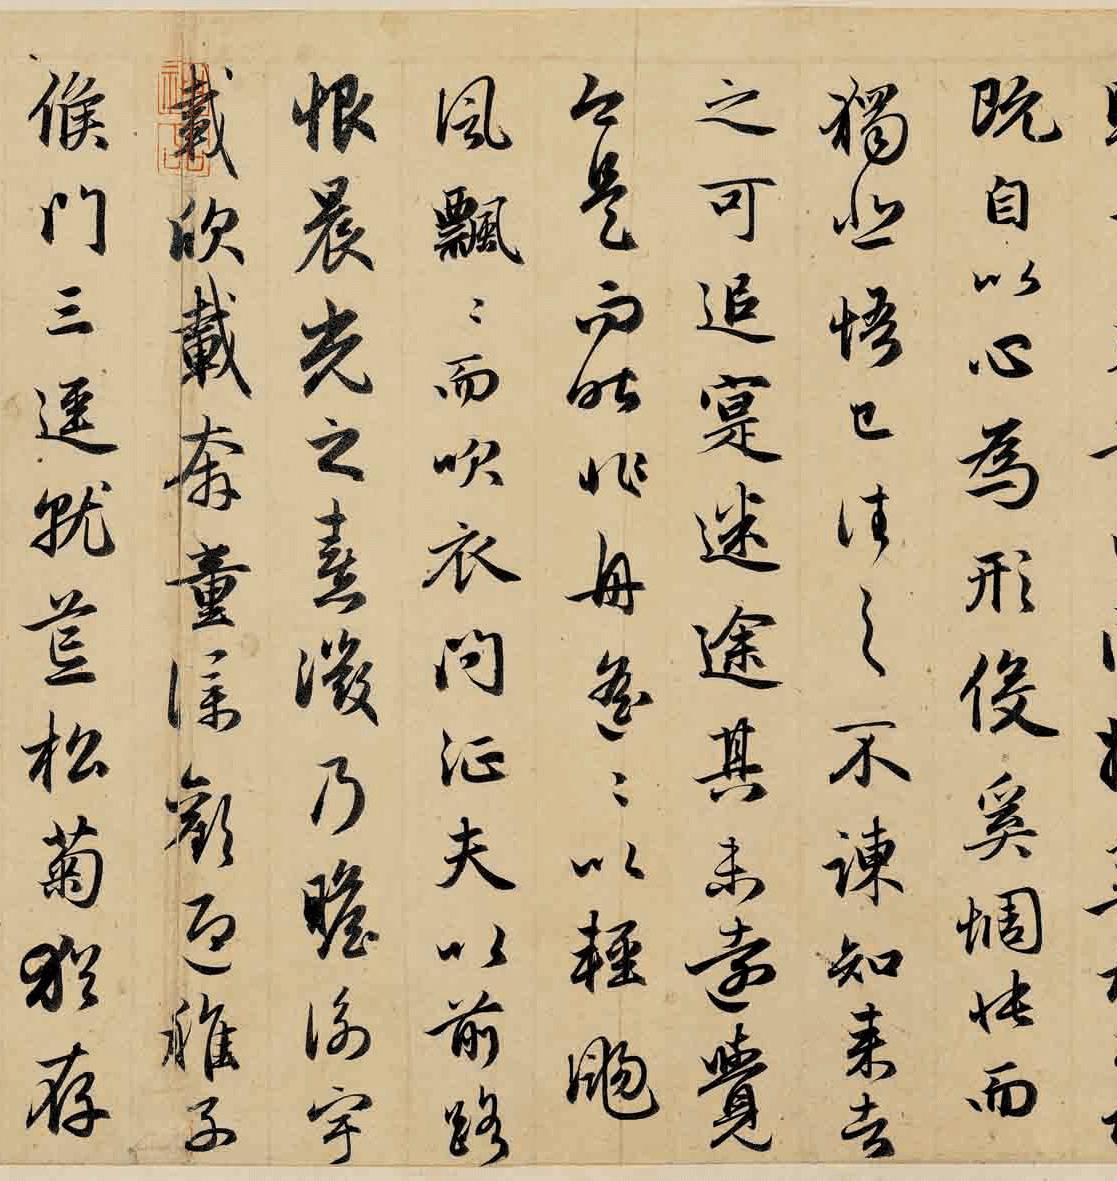 既自以心為形役奚惆悵而
獨悲悟已往之不諫知來者
之可追寔迷途其未遠覺
今是而昨非舟遙〻以輕颺
風飄〻而吹衣問征夫以前路
恨晨光之熹微乃瞻衡宇
載欣載奔童僕歡迎稚子
候門三逕就荒松菊猶存